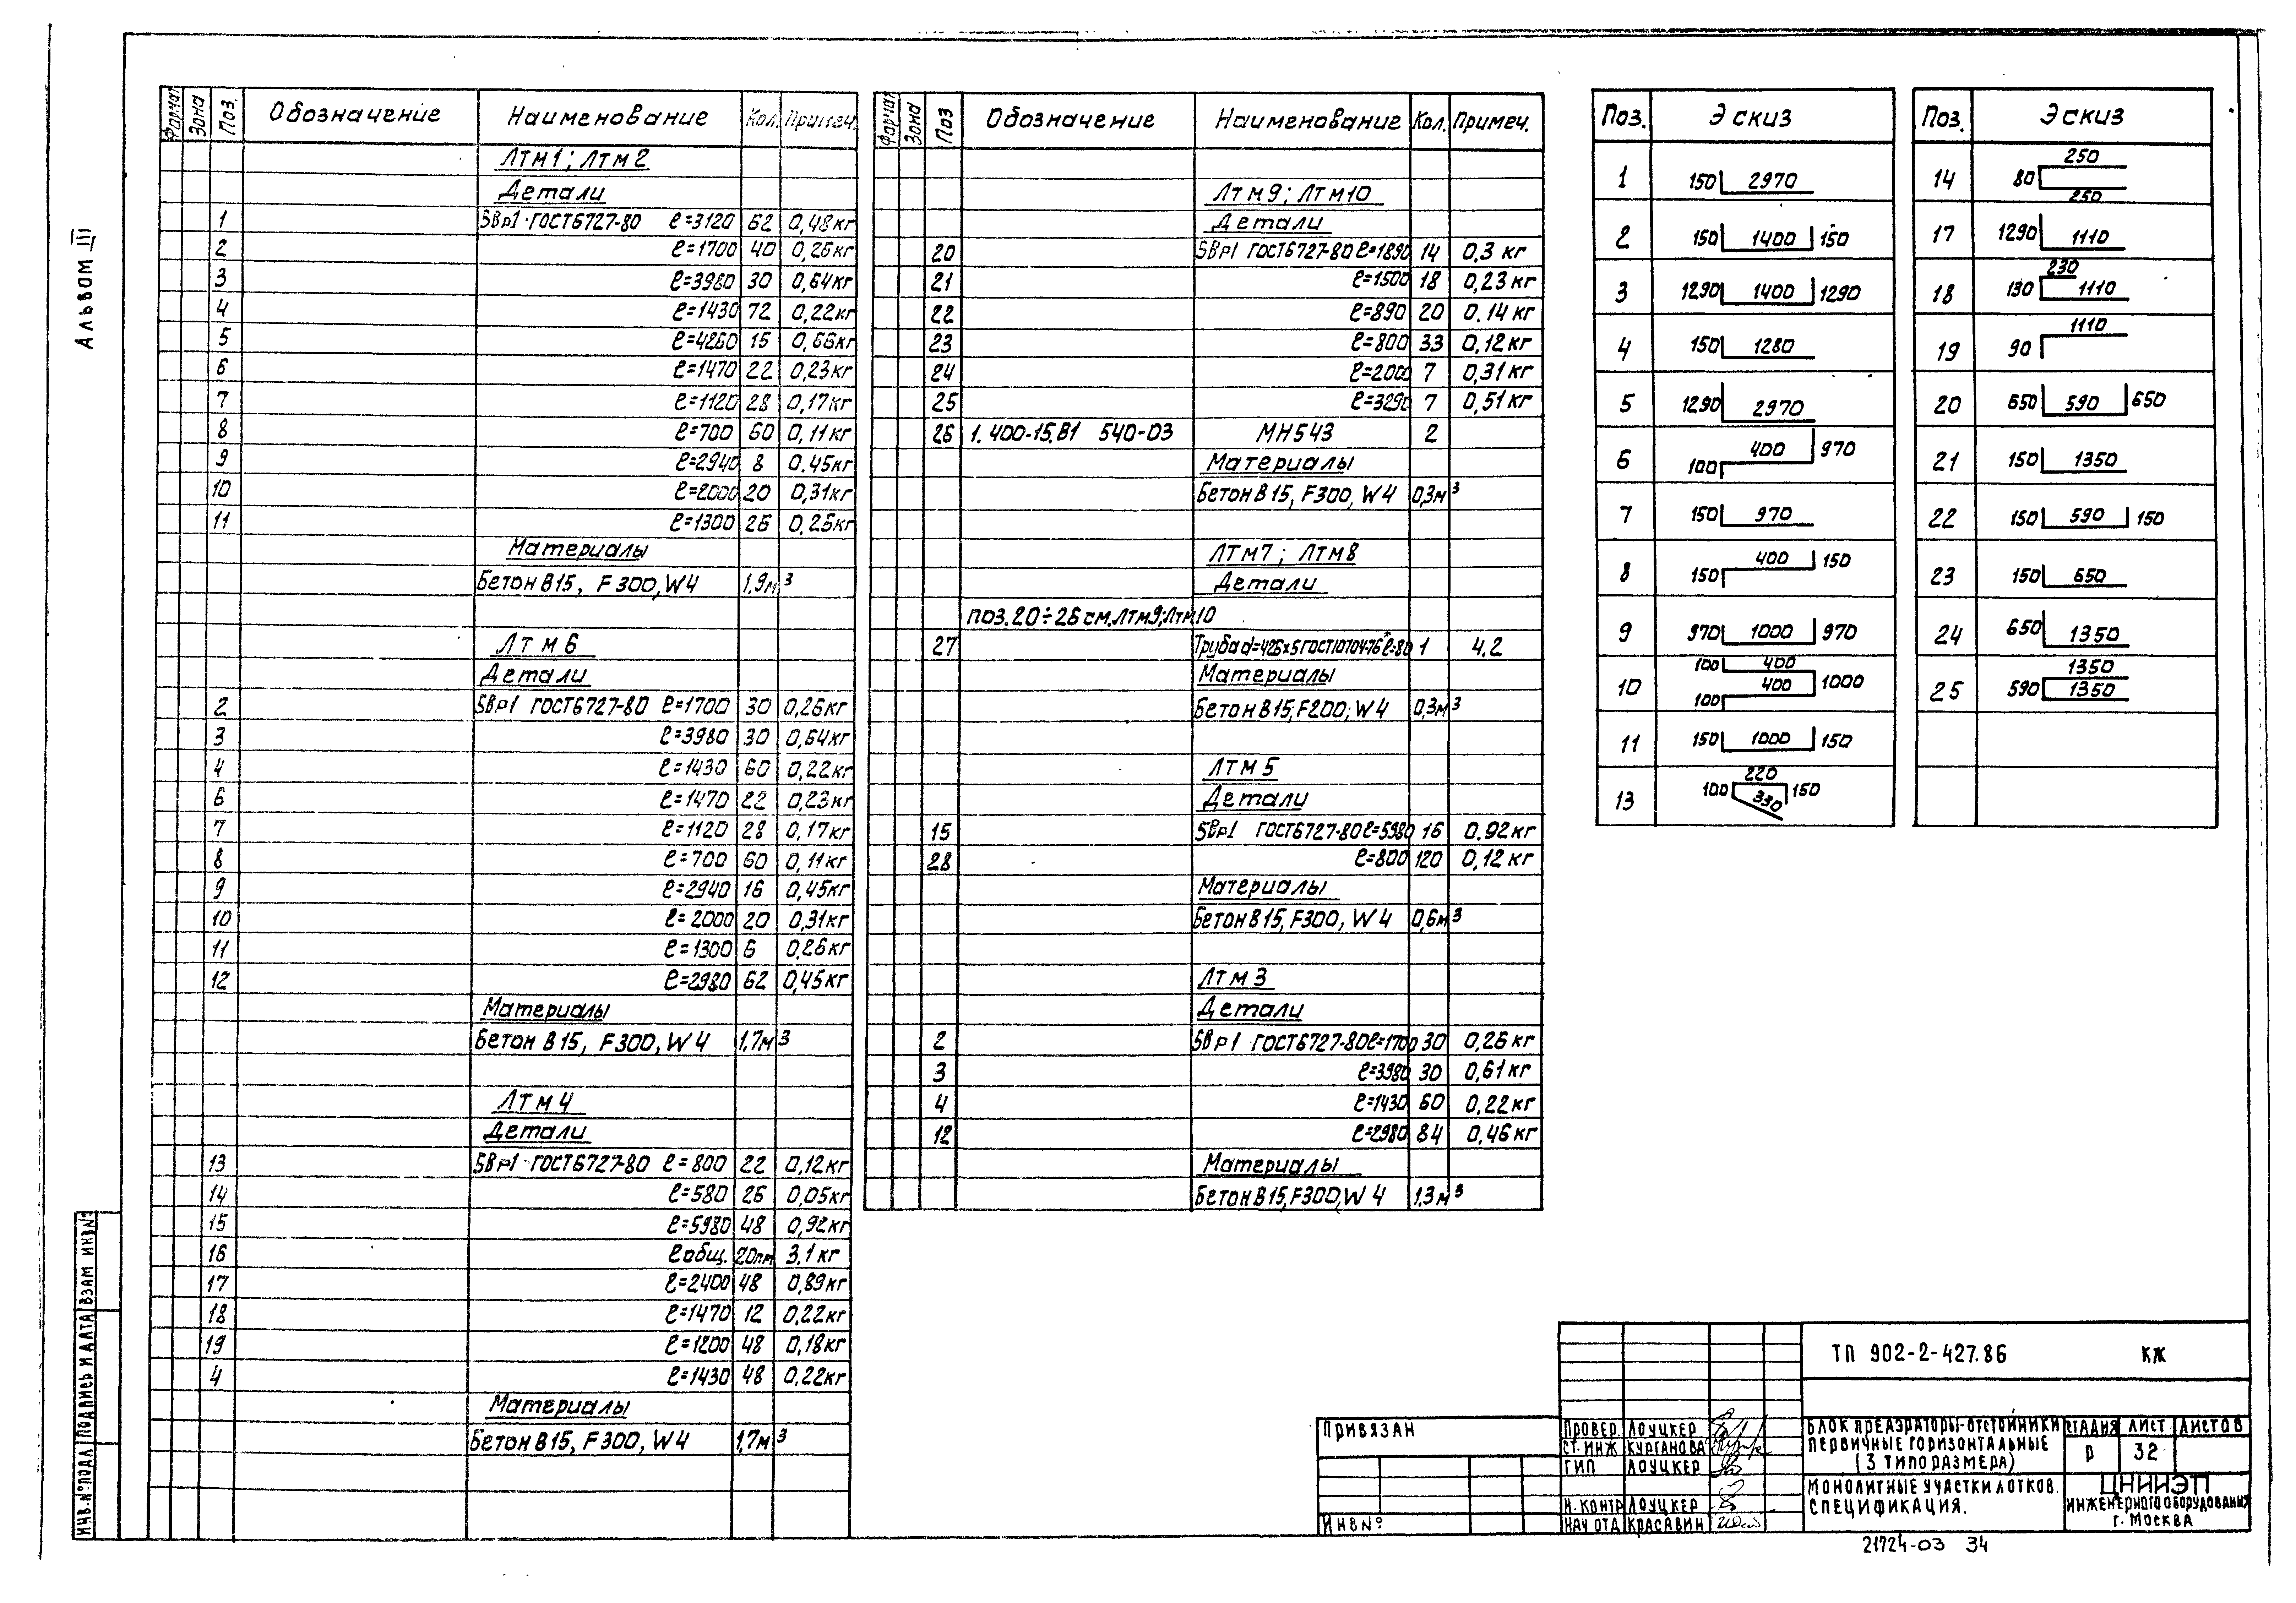 Альбом III
Формат Зона Поз. Обозначение Наименование Кол. Примеч.
Лтм1; Лтм2
Детали
1 5Вр1 ГОСТ6727-80 ℓ=3120 62 0,48кг
2 ℓ=1700 40 0,26кг
3 ℓ=3980 30 0,64кг
4 ℓ=1430 72 0,22кг
5 ℓ=4260 15 0,66кг
6 ℓ=1470 22 0,23кг
7 ℓ=1120 28 0,17кг
8 ℓ=700 60 0,11кг
9 ℓ=2940 8 0.45кг
10 ℓ=2000 20 0,31кг
11 ℓ=1300 26 0,26кг
Материалы
Бетон В15, F300, W4 1,9м³
Лтм6
Детали
2 5Вр1 ГОСТ6727-80 ℓ=1700 30 0,26кг
3 ℓ=3980 30 0,64кг
4 ℓ=1430 60 0,22кг
6 ℓ=1470 22 0,23кг
7 ℓ=1120 28 0,17кг
8 ℓ=700 60 0,11кг
9 ℓ=2940 16 0,45кг
10 ℓ=2000 20 0,31кг
11 ℓ=1300 6 0,26кг
12 ℓ=2980 62 0,45кг
Материалы
Бетон В15, F300, W4 1,7м³
Лтм4
Детали
13 5Вр1 ГОСТ6727-80 ℓ=800 22 0,12кг
14 ℓ=580 26 0,05кг
15 ℓ=5980 48 0,92кг
16 ℓобщ. 20пм 3,1кг
17 ℓ=2400 48 0,89кг
18 ℓ=1470 12 0,22кг
19 ℓ=1200 48 0,18кг
4 ℓ=1430 48 0,22кг
Материалы
Бетон В15, F300, W4 1,7м³
Формат Зона Поз Обозначение Наименование Кол. Примеч.
Лтм9; Лтм10
Детали
20 5Вр1 ГОСТ6727-80 ℓ=1890 14 0,3 кг
21 ℓ=1500 18 0,23кг
22 ℓ=890 20 0.14кг
23 ℓ=800 33 0,12кг
24 ℓ=2000 7 0,31кг
25 ℓ=3290 7 0,51кг
26 1.400-15.В1 540-03 МН543 2
Материалы
Бетон В15, F300, W4 0,3м³
Лтм7; Лтм8
Детали
поз.20÷26 см. Лтм9; Лтм10
27 Труба d=426х5 ГОСТ10704-76* ℓ=80 1 4,2
Материалы
Бетон В15; F200; W4 0,3м³
Лтм5
Детали
15 5Вр1 ГОСТ6727-80 ℓ=5980 16 0.92кг
28 ℓ=800 120 0,12кг
Материалы
Бетон В15, F300, W4 0,6м³
Лтм3
Детали
2 5Вр1 ГОСТ6727-80 ℓ=1700 30 0,26кг
3 ℓ=3980 30 0,61кг
4 ℓ=1430 60 0,22кг
12 ℓ=2980 84 0,46кг
Материалы
Бетон В15, F300, W4 1,3м³
Поз. Эскиз
1 150 2970
2 150 1400 150
3 1290 1400 1290
4 150 1280
5 1290 2970
6 100 400 970
7 150 970
8 150 400 150
9 970 1000 970
10 100 400 400 1000 100
11 150 1000 150
13 100 220 330 150
Поз. Эскиз
14 250 80 250
17 1290 1110
18 230 130 1110
19 1110 90
20 650 590 650
21 150 1350
22 150 590 150
23 150 650
24 650 1350
25 1350 590 1350
ТП 902-2-427.86 КЖ
Привязан
Инв №
Провер. Лоуцкер
Ст. инж Курганова
ГИП Лоуцкер
Н. контр Лоуцкер
Нач отд Красавин
Блок преаэраторы-отстойники
первичные горизонтальные
(3 типоразмера)
Стадия Лист Листов
Р 32
Монолитные участки лотков.
Спецификация.
ЦНИИЭП
инженерного оборудования
г. Москва
21724-03 34
Инв.№ подл Подпись и дата Взам инв №